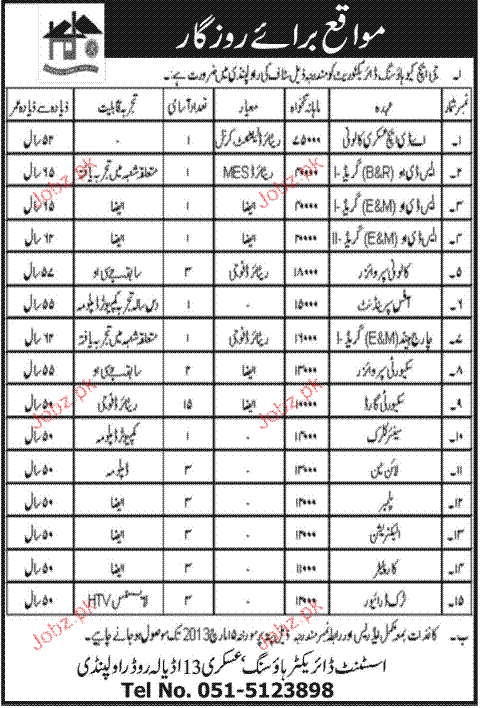 مواقع برائے روزگار
ا۔ جی ایچ کیو ہاؤسنگ ڈائریکٹوریٹ کو مندرجہ ذیل سٹاف کی راولپنڈی میں ضرورت ہے:۔
نمبر شمار عہدہ ماہانہ تنخواہ معیار تعداد آسامی تجربہ قابلیت زیادہ سے زیادہ عمر
۱۔ اے ڈی ایچ عسکری کالونی ۷۵۰۰۰ ریٹائرڈ لیفٹیننٹ کرنل ۱ - ۵۲ سال
۲۔ ایس ڈی او (B&R) گریڈ I- ریٹائرڈ MES ۱ متعلقہ شعبہ میں تجربہ یافتہ ۶۵ سال
۳۔ ایس ڈی او (E&M) گریڈ I- ایضا ۱ ایضا ۶۵ سال
۴۔ ایس ڈی او (E&M) گریڈ II- ایضا ۱ ایضا ۶۲ سال
۵۔ کالونی سپروائزر ۱۸۰۰۰ ریٹائرڈ فوجی ۳ سابقہ جے سی او ۵۷ سال
۶۔ آفس سپرنٹنڈنٹ ۱۵۰۰۰ - ۱ دس سالہ تجربہ کمپیوٹر ڈپلومہ ۵۵ سال
۷۔ چارج ہینڈ (E&M) گریڈ I- ۱۶۰۰۰ ریٹائرڈ فوجی ۱ متعلقہ شعبہ میں تجربہ یافتہ ۶۲ سال
۸۔ سکیورٹی سپروائزر ۱۳۰۰۰ ایضا ۲ سابقہ جے سی او ۵۵ سال
۹۔ سکیورٹی گارڈ ایضا ۱۵ ریٹائرڈ فوجی ۵۰ سال
۱۰۔ سینئر کلرک ۱۳۰۰۰ - ۱ کمپیوٹر ڈپلومہ ۵۰ سال
۱۱۔ لائن مین ۱۳۰۰۰ - ۳ ڈپلومہ ۵۰ سال
۱۲۔ پلمبر ۱۲۰۰۰ - ۳ ایضا ۵۰ سال
۱۳۔ الیکٹریشن ۱۲۰۰۰ - ۳ ایضا ۵۰ سال
۱۴۔ کارپینٹر ۱۱۰۰۰ - ۳ ایضا ۵۰ سال
۱۵۔ ٹرک ڈرائیور ۱۳۰۰۰ - ۳ لائسنس HTV ۵۰ سال
ب۔ کاغذات بمعہ مکمل ایڈریس اور رابطہ نمبر مندرجہ ذیل پتہ پر مورخہ ۱۵ مارچ 2013 تک موصول ہو جانے چاہیے۔
اسسٹنٹ ڈائریکٹر ہاؤسنگ، عسکری 13 اڈیالہ روڈ راولپنڈی
Tel No. 051-5123898
Jobz.pk
Jobz.pk
Jobz.pk
Jobz.pk
Jobz.pk
Jobz.pk